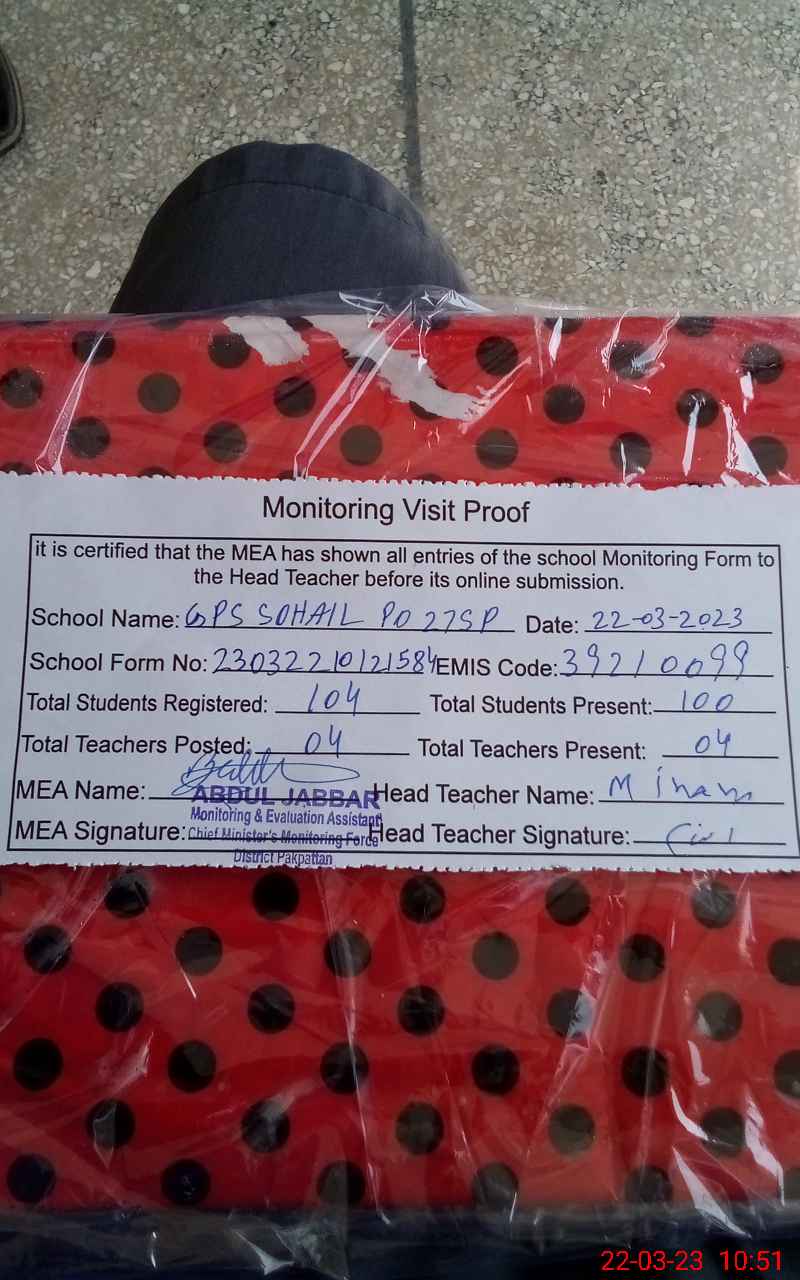 Monitoring Visit Proof
it is certified that the MEA has shown all entries of the school Monitoring Form to
the Head Teacher before its online submission.
School Name: GPS SOHAIL PO 27SP Date: 22-03-2023
School Form No: 23032210121584 EMIS Code: 39210099
Total Students Registered: 104 Total Students Present: 100
Total Teachers Posted: 04 Total Teachers Present: 04
MEA Name: Head Teacher Name: M Inam
ABDUL JABBAR
Monitoring & Evaluation Assistant
MEA Signature: Head Teacher Signature:
Chief Minister's Monitoring Force
District Pakpattan
22-03-23 10:51